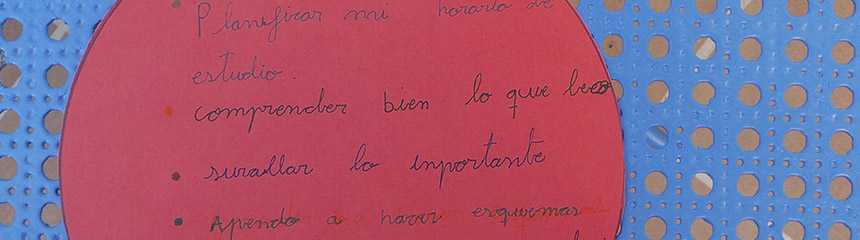 Planificar mi horario de
estudio.
comprender bien lo que leeo
surallar lo inportante
Apendo a hacer esquemas